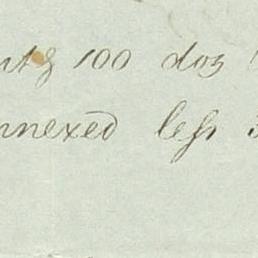 100 doz
nnexed less 3